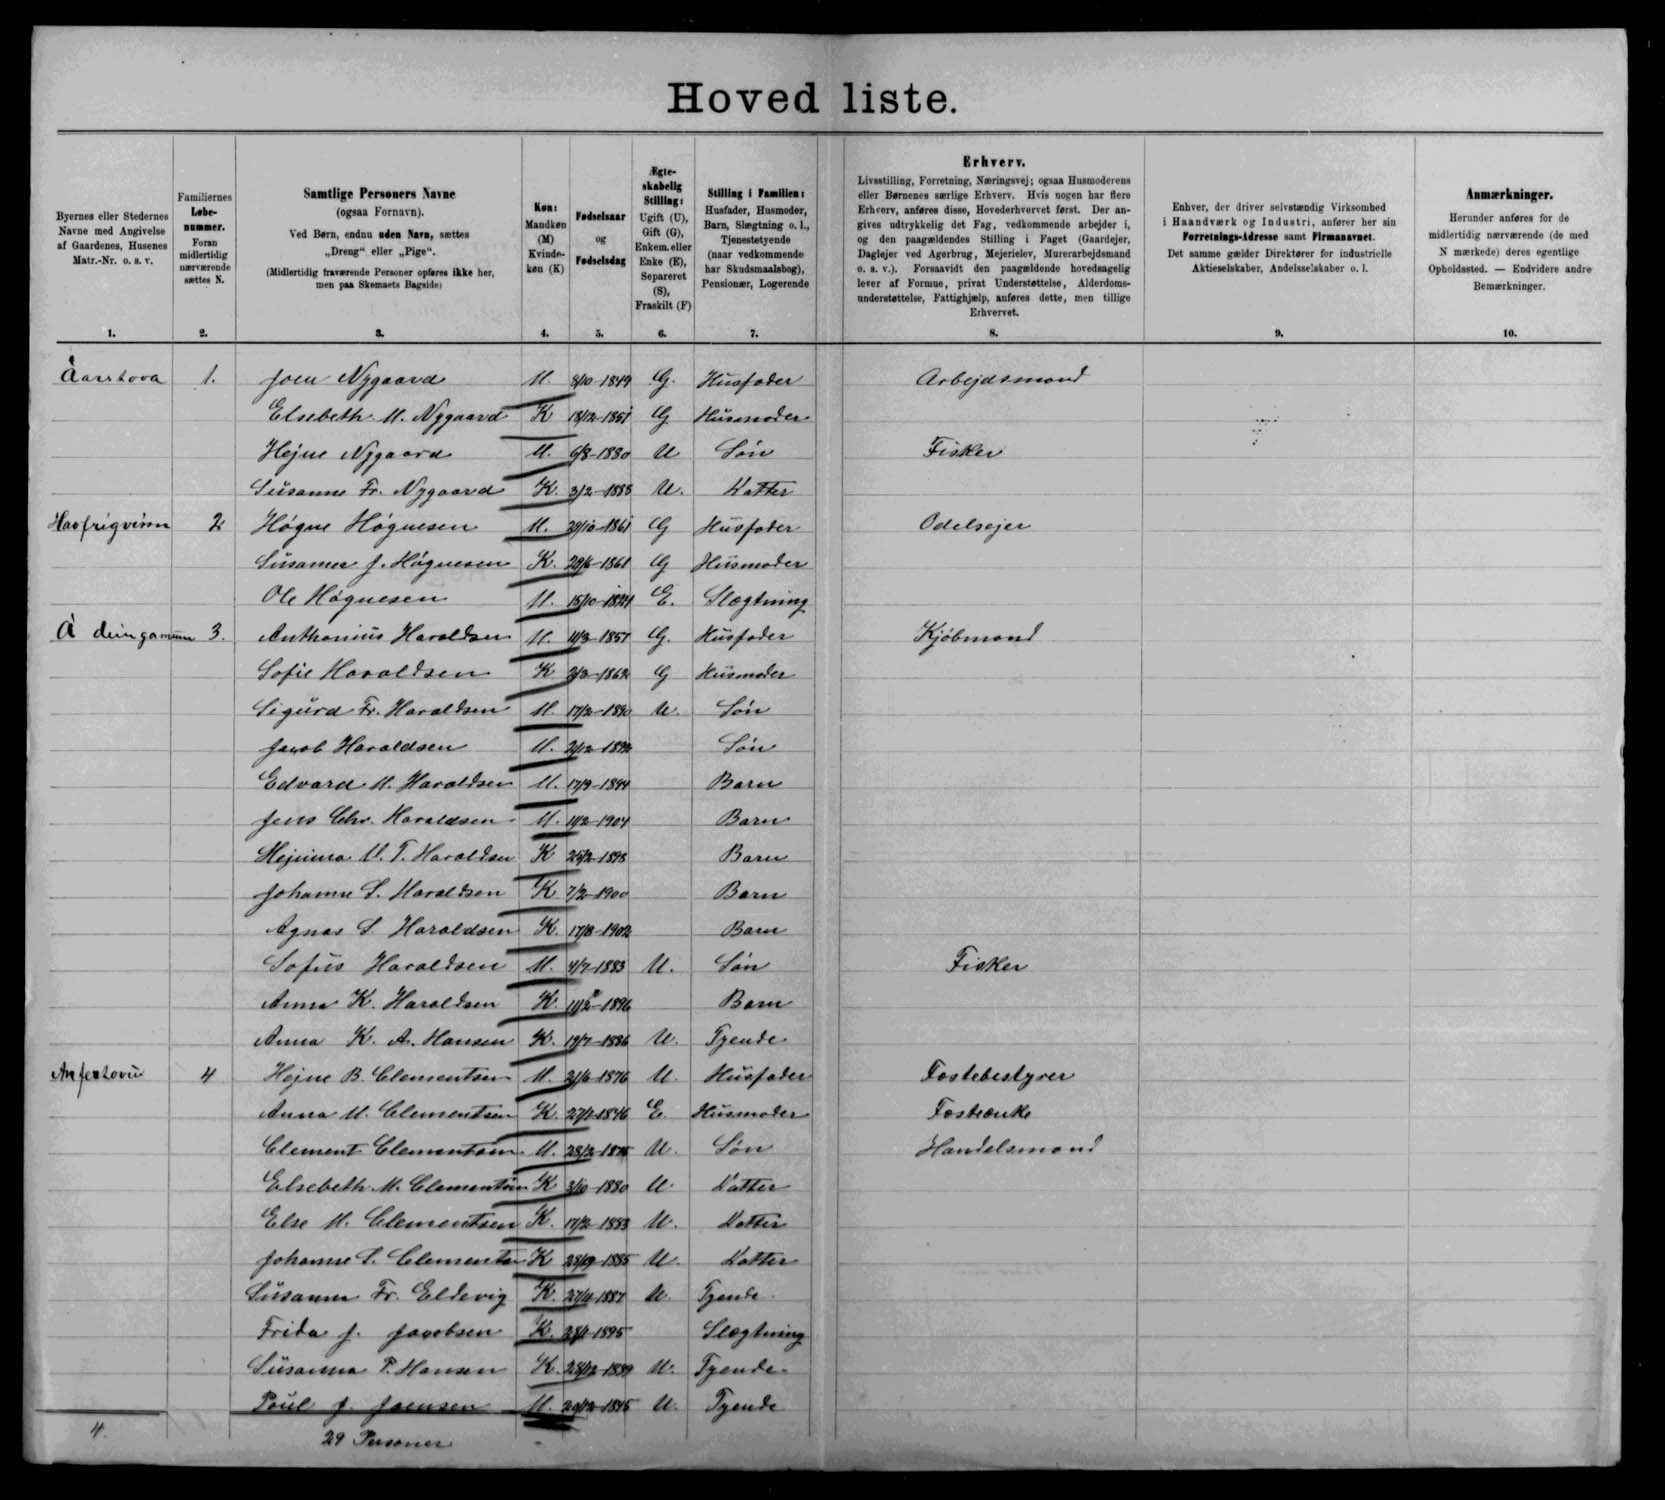 Hovedliste.
Byernes eller Stedernes Navne med Angivelse af Gaardenes, Husenes Matr.-Nr. o. s. v.
Familiernes Løbenummer. Foran midlertidig nærværende sættes N.
Samtlige Personers Navne (ogsaa Fornavn). Ved Børn, endnu uden Navn, sættes „Dreng“ eller „Pige“. (Midlertidig fraværende Personer opføres ikke her, men paa Skemaets Bagside)
Køn: Mandkøn (M) Kvindekøn (K)
Fødselsaar og Fødselsdag
Ægteskabelig Stilling: Ugift (U), Gift (G), Enkem. eller Enke (E), Separeret (S), Fraskilt (F)
Stilling i Familien: Husfader, Husmoder, Barn, Slægtning o. l., Tjenestetyende (naar vedkommende har Skudsmaalsbog), Pensionær, Logerende
Erhverv. Livsstilling, Forretning, Næringsvej; ogsaa Husmoderens eller Børnenes særlige Erhverv. Hvis nogen har flere Erhverv, anføres disse, Hovederhvervet først. Der angives udtrykkelig det Fag, vedkommende arbejder i, og den paagældendes Stilling i Faget (Gaardejer, Daglejer ved Agerbrug, Mejerielev, Murerarbejdsmand o. s. v.). Forsaavidt den paagældende hovedsagelig lever af Formue, privat Understøttelse, Alderdomsunderstøttelse, Fattighjælp, anføres dette, men tillige Erhvervet.
Enhver, der driver selvstændig Virksomhed i Haandværk og Industri, anfører her sin Forretnings-Adresse samt Firmanavnet. Det samme gælder Direktører for industrielle Aktieselskaber, Andelsselskaber o. l.
Anmærkninger. Herunder anføres for de midlertidig nærværende (de med N mærkede) deres egentlige Opholdssted. — Endvidere andre Bemærkninger.
1. 2. 3. 4. 5. 6. 7. 8. 9. 10.
1. Joen Nygaard M. 8/10-1849 G. Husfader Arbejdsmand
Elsebeth M. Nygaard K 18/12-1851 G Husmoder
Hejne Nygaard M. 6/8-1880 U Søn Fisker
Susanne Fr. Nygaard K. 3/2-1888 U. Datter
2 Høgne Høgnesen M. G Husfader Odelsejer
Susanna J. Høgnesen K. G Husmoder
Ole Høgnesen M. 15/10-1824 E. Slægtning
3. Anthonius Haraldsen M. 11/3-1851 G. Husfader Kjøbmand
Sofie Haraldsen K G Husmoder
Sigurd Fr. Haraldsen M. 17/2-1890 U. Søn
Jacob Haraldsen M. 2/12-1892 Søn
Edvard M. Haraldsen M. 17/9-1894 Barn
Jens Chr. Haraldsen M. 11/2-1904 Barn
Hejnina V. T. Haraldsen K 25/2-1898 Barn
Johanne S. Haraldsen K 7/2-1900 Barn
Agnas S. Haraldsen K. 17/8-1902 Barn
Sofus Haraldsen M. 4/7-1883 U. Søn Fisker
Anna K. Haraldsen K. Barn
Anna K. A. Hansen K. 19/7-1886 U. Tyende
4 Hejne B. Clementsen M. 21/6-1876 U. Husfader Fæstebestyrer
Anna M. Clementsen K. E. Husmoder Fæsteenke
Clement Clementsen M. U. Søn Handelsmand
Elsebeth M. Clementsen K 3/10-1880 U. Datter
Else M. Clementsen K. 17/2-1883 U. Datter
Johanne S. Clementsen K U. Datter
Susanna Fr. Eldevig K. U. Tyende
Frida J. Jacobsen K. Slægtning
Susanna P. Hansen K. 28/12-1889 U. Tyende
Poul J. Joensen M. U. Tyende
4. 29 Personer